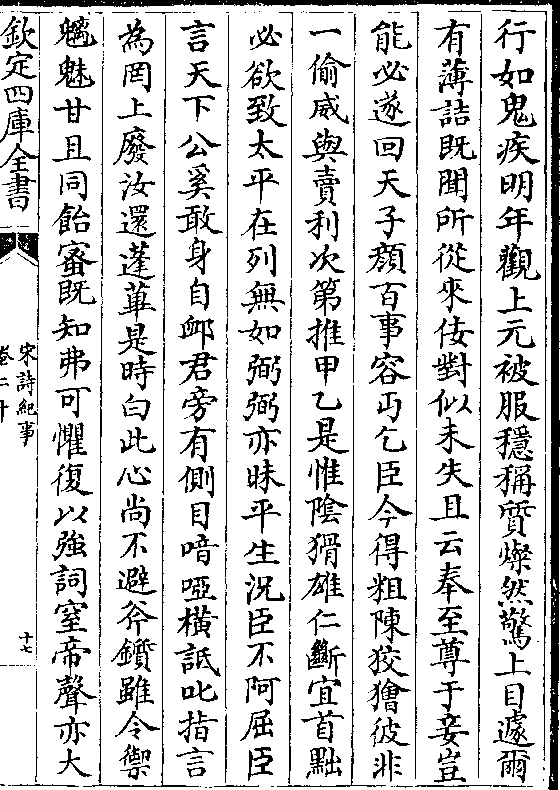 行如鬼疾明年觀上元被服穩稱質燦然驚上目遽爾
有薄詰既聞所從來佞對似未失且云奉至尊于妾豈
能必遂回天子顏百事容丐乞臣今得粗陳狡獪彼非
一偷威與賣利次第推甲乙是惟陰猾雄仁斷宜首黜
必欲致太平在列無如弼弼亦昧平生況臣不阿屈臣
言天下公奚敢身自卹君旁有側目喑啞橫詆叱指言
為罔上廢汝還蓬蓽是時白此心尚不避斧鑕雖令禦
魑魅甘且同飴蜜既知弗可懼復以強詞窒帝聲亦大
欽定四庫全書
宋詩紀事
卷二十
十七